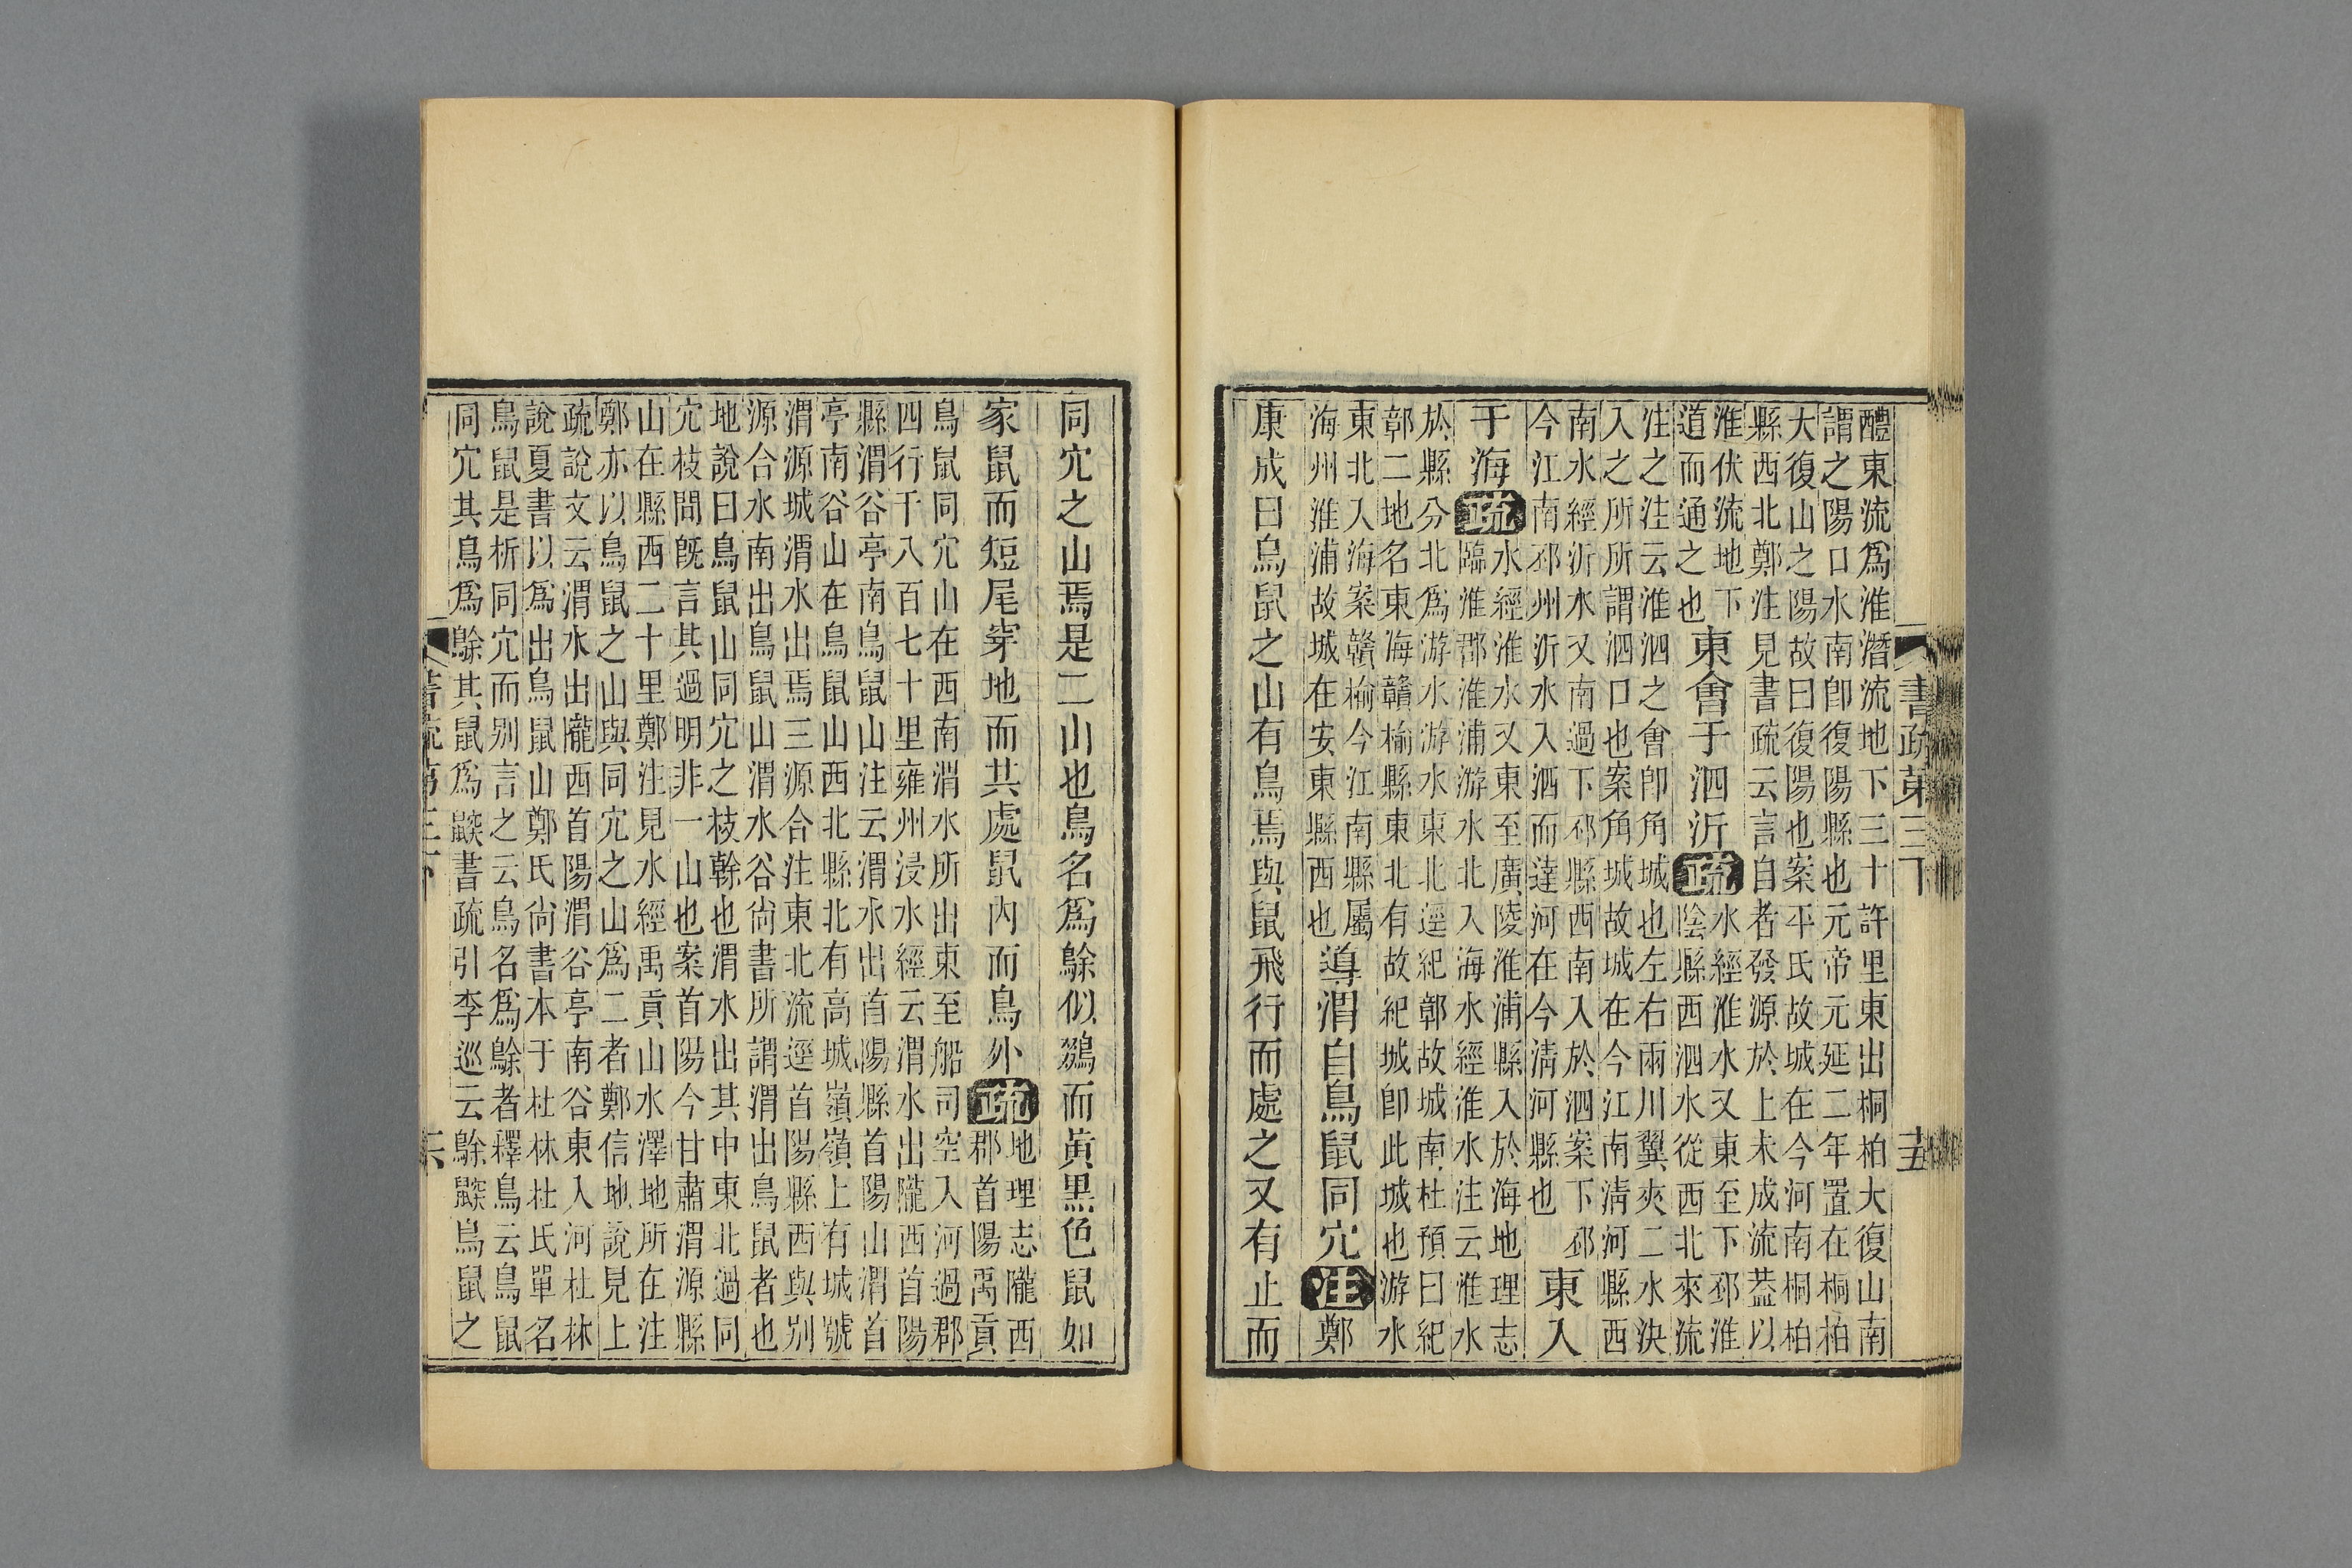 書疏第三下
醴東流爲淮潛流地下三十許里東出桐柏大復山南
謂之陽口水南卽復陽縣也元帝元延二年置在桐柏
大復山之陽故曰復陽也案平氏故城在今河南桐柏
縣西北鄭注見書疏云言自者發源於上未成流葢以
淮伏流地下
道而通之也
東會于泗沂疏
水經淮水又東至下邳淮
陰縣西泗水從西北來流
注之注云淮泗之會卽角城也左右兩川翼夾二水決
入之所所謂泗口也案角城故城在今江南清河縣西
南水經沂水又南過下邳縣西南入於泗案下邳
今江南邳州沂水入泗而達河在今清河縣也
東入
于海疏
水經淮水又東至廣陵淮浦縣入於海地理志
臨淮郡淮浦游水北入海水經淮水注云淮水
於縣分北爲游水游水東北逕紀鄣故城南杜預曰紀
鄣二地名東海贛榆縣東北有故紀城卽此城也游水
東北入海案贛榆今江南縣屬
海州淮浦故城在安東縣西也
導渭自鳥鼠同穴注鄭
康成曰鳥鼠之山有鳥焉與鼠飛行而處之又有止而
同穴之山焉是二山也鳥名爲鵌似鵽而黃黑色鼠如
家鼠而短尾穿地而共處鼠內而鳥外疏
地理志隴西
郡首陽禹貢
鳥鼠同穴山在西南渭水所出東至船司空入河過郡
四行千八百七十里雍州浸水經云渭水出隴西首陽
縣渭谷亭南鳥鼠山注云渭水出首陽縣首陽山渭首
亭南谷山在鳥鼠山西北縣北有高城嶺嶺上有城號
渭源城渭水出焉三源合注東北流逕首陽縣西與別
源合水南出鳥鼠山渭水谷尙書所謂渭出鳥鼠者也
地說曰鳥鼠山同穴之枝幹也渭水出其中東北過同
穴枝間旣言其過明非一山也案首陽今甘肅渭源縣
山在縣西二十里鄭注見水經禹貢山水澤地所在注
鄭亦以鳥鼠之山與同穴之山爲二者鄭信地說見上
疏說文云渭水出隴西首陽渭谷亭南谷東入河杜林
說夏書以爲出鳥鼠山鄭氏尙書本于杜林杜氏單名
鳥鼠是析同穴而別言之云鳥名爲鵌者釋鳥云鳥鼠
同穴其鳥爲鵌其鼠爲鼵書疏引李巡云鵌鼵鳥鼠之